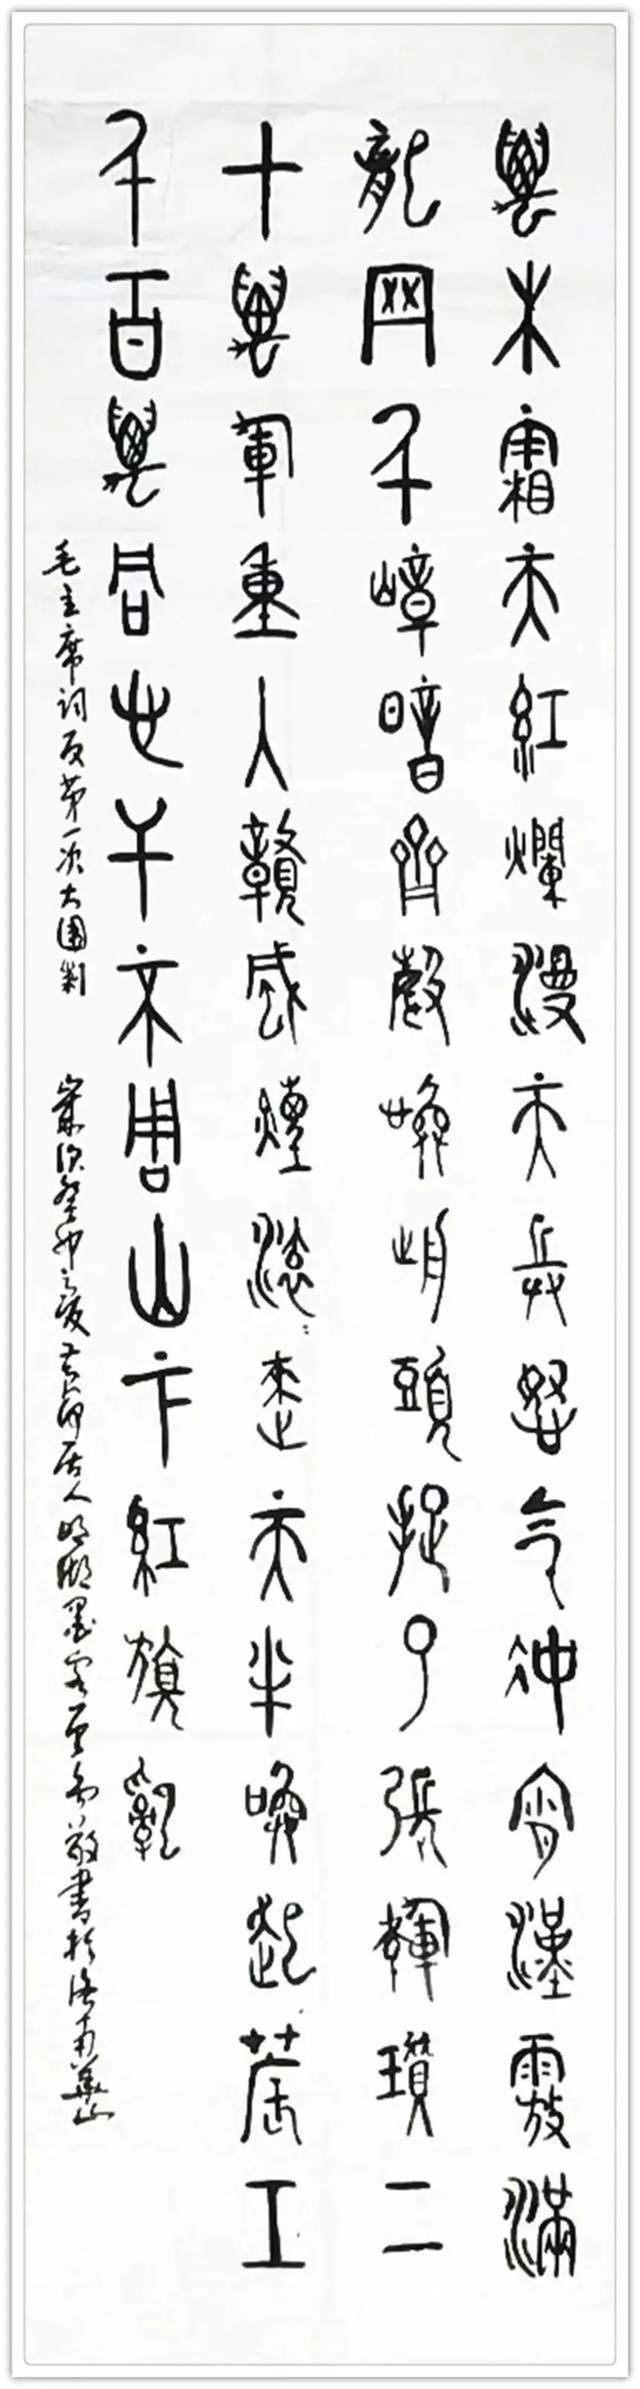 萬木霜天紅爛漫天兵怒气沖霄漢霧滿
龍岡千嶂暗齊聲喚前頭捉了張輝瓚二
十萬軍重入贛風煙滾〻來天半喚起農工
千百萬同心干不周山下紅旗亂
毛主席詞反第一次大圍剿
歲次癸卯之夏 居人明湖墨客 敬書於濟南華山